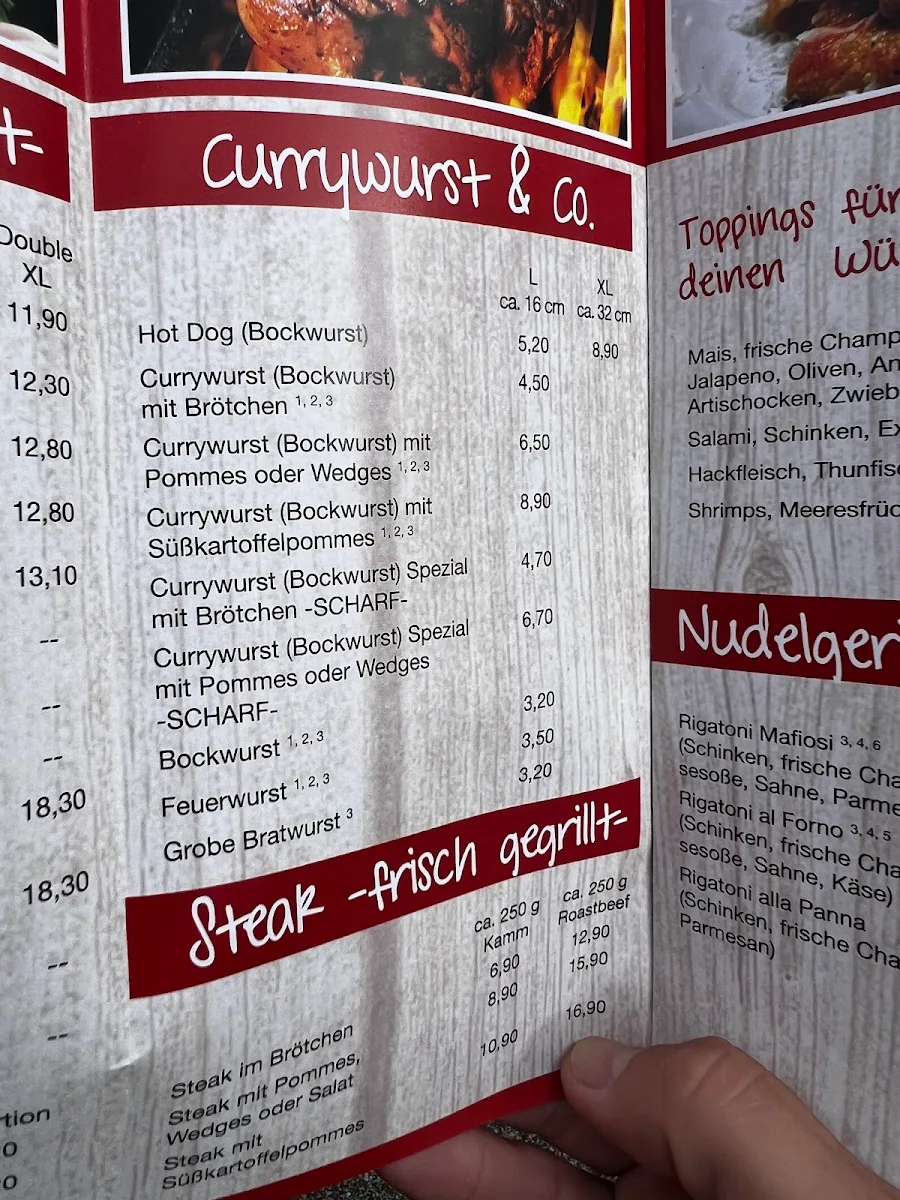 t-
Double
XL
11,90
12,30
12,80
12,80
13,10
--
--
--
18,30
18,30
--
--
Currywurst & Co.
L XL
ca. 16 cm ca. 32 cm
Hot Dog (Bockwurst) 5,20 8,90
Currywurst (Bockwurst) 4,50
mit Brötchen 1, 2, 3
Currywurst (Bockwurst) mit 6,50
Pommes oder Wedges 1, 2, 3
Currywurst (Bockwurst) mit 8,90
Süßkartoffelpommes 1, 2, 3
Currywurst (Bockwurst) Spezial 4,70
mit Brötchen -SCHARF-
Currywurst (Bockwurst) Spezial 6,70
mit Pommes oder Wedges
-SCHARF-
Bockwurst 1, 2, 3 3,20
Feuerwurst 1, 2, 3 3,50
Grobe Bratwurst 3 3,20
Steak -frisch gegrillt-
ca. 250 g ca. 250 g
Kamm Roastbeef
Steak im Brötchen 6,90 12,90
Steak mit Pommes, 8,90 15,90
Wedges oder Salat
Steak mit 10,90 16,90
Süßkartoffelpommes
Toppings für
deinen Wü
Mais, frische Champ
Jalapeno, Oliven, An
Artischocken, Zwieb
Salami, Schinken, Ex
Hackfleisch, Thunfisc
Shrimps, Meeresfrüc
Nudelger
Rigatoni Mafiosi 3, 4, 6
(Schinken, frische Cha
sesoße, Sahne, Parme
Rigatoni al Forno 3, 4, 5
(Schinken, frische Cha
sesoße, Sahne, Käse)
Rigatoni alla Panna
(Schinken, frische Cha
Parmesan)